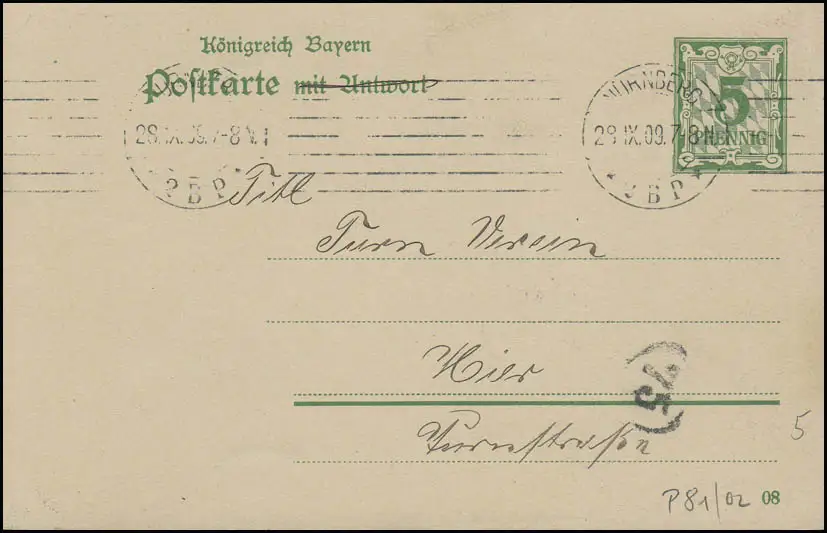 Königreich Bayern
Postkarte mit Antwort
NÜRNBERG 2
28.IX.09.7-8 N.
2 B P
NÜRNBERG 2
28.IX.09.7-8 N.
* 2 B P *
5
PFENNIG
Titl
Turn Verein
Hier
Turnstraße
5
P81/02
08